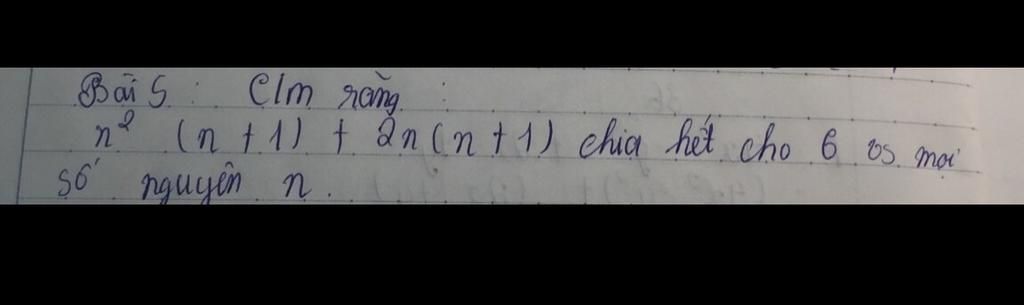 Bài 5 : C/m rằng :
n² (n + 1) + 2n (n + 1) chia hết cho 6 vs mọi
số nguyên n.